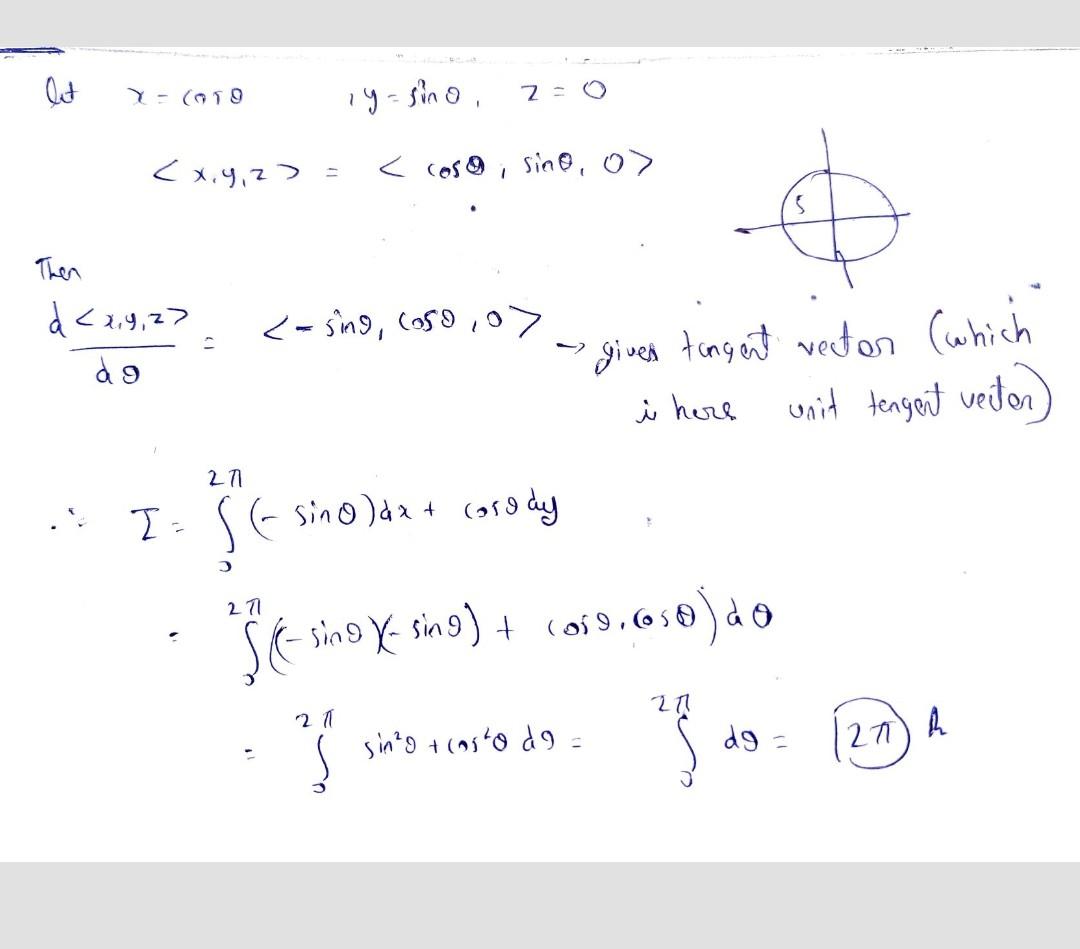 let x = cosθ , y = sinθ, z = 0
<x,y,z> = < cosθ, sinθ, 0>
S
Then
d<x,y,z>/dθ = <-sinθ, cosθ, 0> → gives tangent vector (which
is here unit tangent vector)
∴ I = ∫₀^2π (- sinθ)dx + cosθ dy
= ∫₀^2π ((-sinθ)(-sinθ) + cosθ.cosθ) dθ
= ∫₀^2π sin²θ + cos²θ dθ = ∫₀^2π dθ = 2π